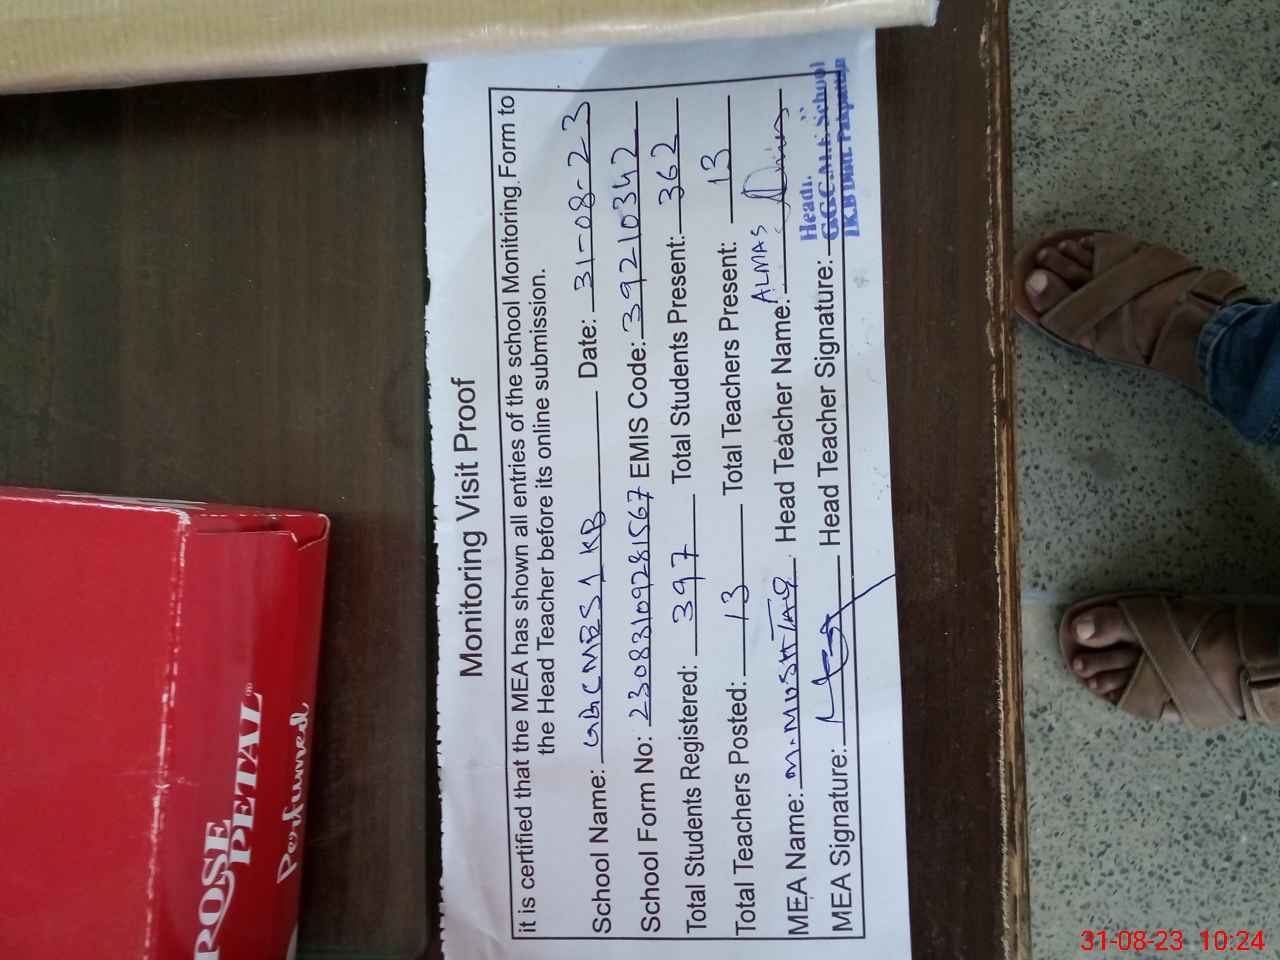 Monitoring Visit Proof
it is certified that the MEA has shown all entries of the school Monitoring Form to
the Head Teacher before its online submission.
School Name: GGCMES 1 KB Date: 31-08-23
School Form No: 23083109281567 EMIS Code: 39210342
Total Students Registered: 397 Total Students Present: 362
Total Teachers Posted: 13 Total Teachers Present: 13
MEA Name: M. MUSHTAQ Head Teacher Name: ALMAS
MEA Signature: Head Teacher Signature:
G.G.C.M.E. School
ROSE
PETAL
Perfumed
31-08-23 10:24